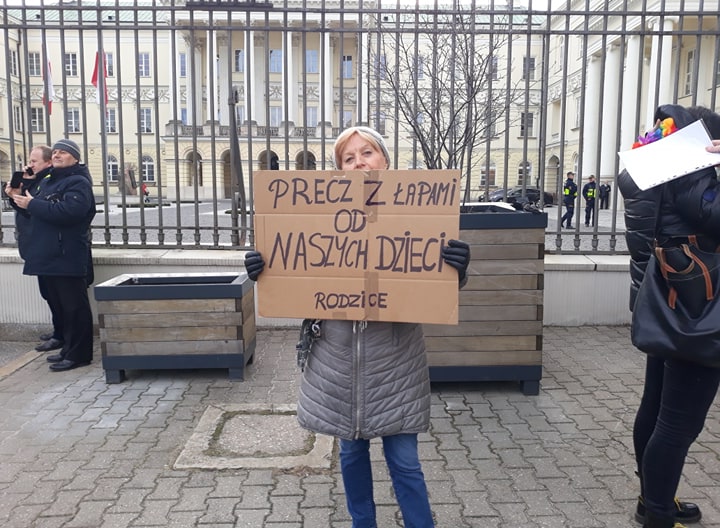 PRECZ Z ŁAPAMI
OD
NASZYCH DZIECI
RODZICE